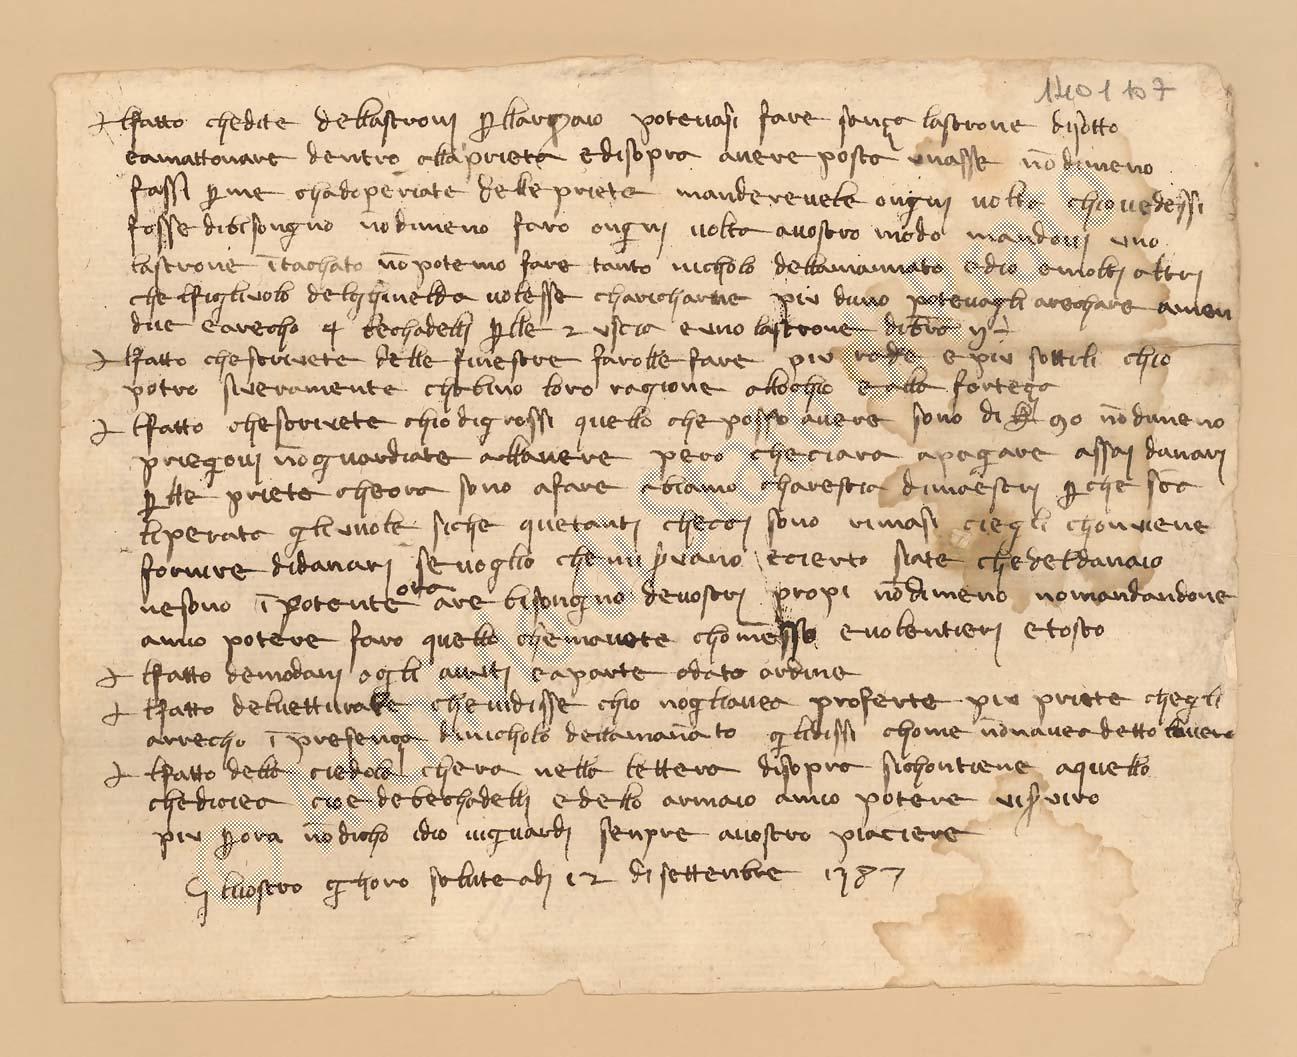 1401107
lfatto chedite dellastroni p llarmaio potevasi fare sança lastrone disotto
eamattonare dentro alla prieta edisopra avere posta unasse nōdimeno
fassi p me chadoperiate delle priete manderevele ongni volta chiovedessi
fosse dibisongno nōdimeno faro ongni volta avostro modo mandovi uno
lastrone ītachato nōpotemo fare tanto nicholo dellamannato edio emolti altri
che lfigliuolo delghinelda volesse charicharne piu duno potevagli arechare amen
due earecho 4 bechadelli p lle 2 uscia euno lastrone di
lfatto chescrivete delle finestre farolle fare piu rade epiu sottili chio
potro siveramente chabino loro ragione allochio ealla forteça
lfatto chescrivete chiodigrossi quello che posso avere sono di nōdimeno
priegovi nōguardiate allavere pero checiara apagare assai danari
p lle priete cheora sono afare abiamo charestia dimaestri p che
liperata gli vuole siche quetanti checci sono rimasi ciegli chonviene
fornire didanari sevoglio che mi servano ecierto siate chedeldanaio
nesono īpotente ora are bisongno devostri propi nōdimeno nomandandone
amio potere faro quello chemavete chomesso evolentieri etosto
lfatto demodani agli aviti eaparte odato ordine
lfatto delvetturale chevidisse chio nogliavea proferte piu priete chegli
arrecho īpresença dinicholo dellamanato glidissi chome nōnavea detto lovero
lfatto della ciedola chera nella lettera disopra sichontiene aquello
chediciea cioe debechadelli edello armaio amio potere viserviro
piu p ora nōdicho idio viguardi senpre avostro piaciere
livostro ghoro salute adi 12 disettenbre 1387